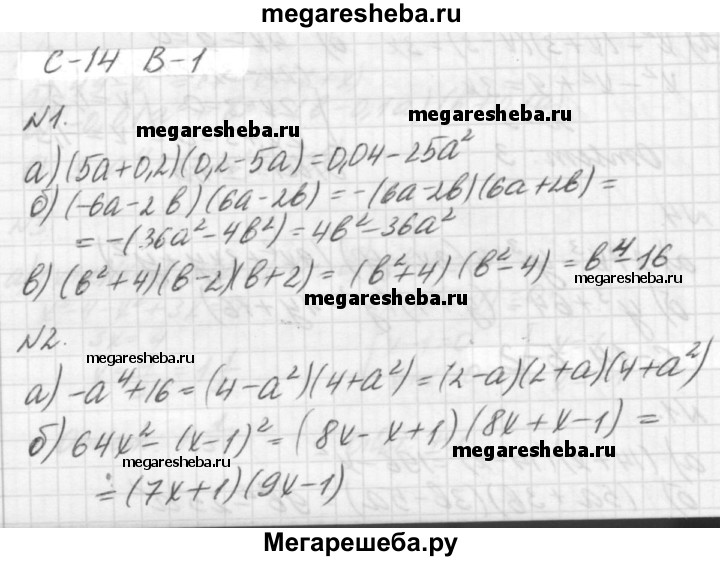 megaresheba.ru
С-14 В-1
№1.
megaresheba.ru
а) (5а+0,2)(0,2-5а)=0,04-25а²
б) (-6а-2в)(6а-2в)=-(6а-2в)(6а+2в)=
=-(36а²-4в²)=4в²-36а²
в) (в²+4)(в-2)(в+2)=(в²+4)(в²-4)=в⁴-16
megaresheba.ru
megaresheba.ru
№2.
megaresheba.ru
а) -а⁴+16=(4-а²)(4+а²)=(2-а)(2+а)(4+а²)
б) 64х²-(х-1)²=(8х-х+1)(8х+х-1)=
megaresheba.ru
megaresheba.ru
=(7х+1)(9х-1)
Мегарешеба.ру